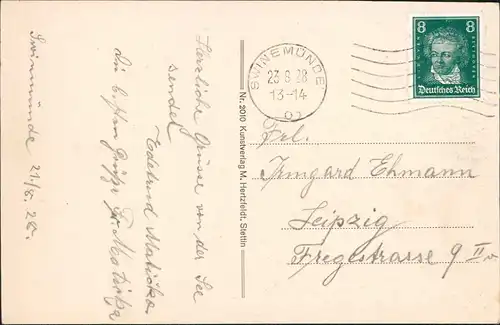 Swinemünde 21/6. 28.
Herzliche Grüsse von der See
sendet
Edeltrud
Die besten Grüße Fr.
Nr. 2010 Kunstverlag M. Hertzfeldt, Stettin
SWINEMÜNDE
23 6 28
13-14
8 8
Deutsches Reich
Frl.
Irmgard Ehmann
Leipzig
Fregestrasse 9 II